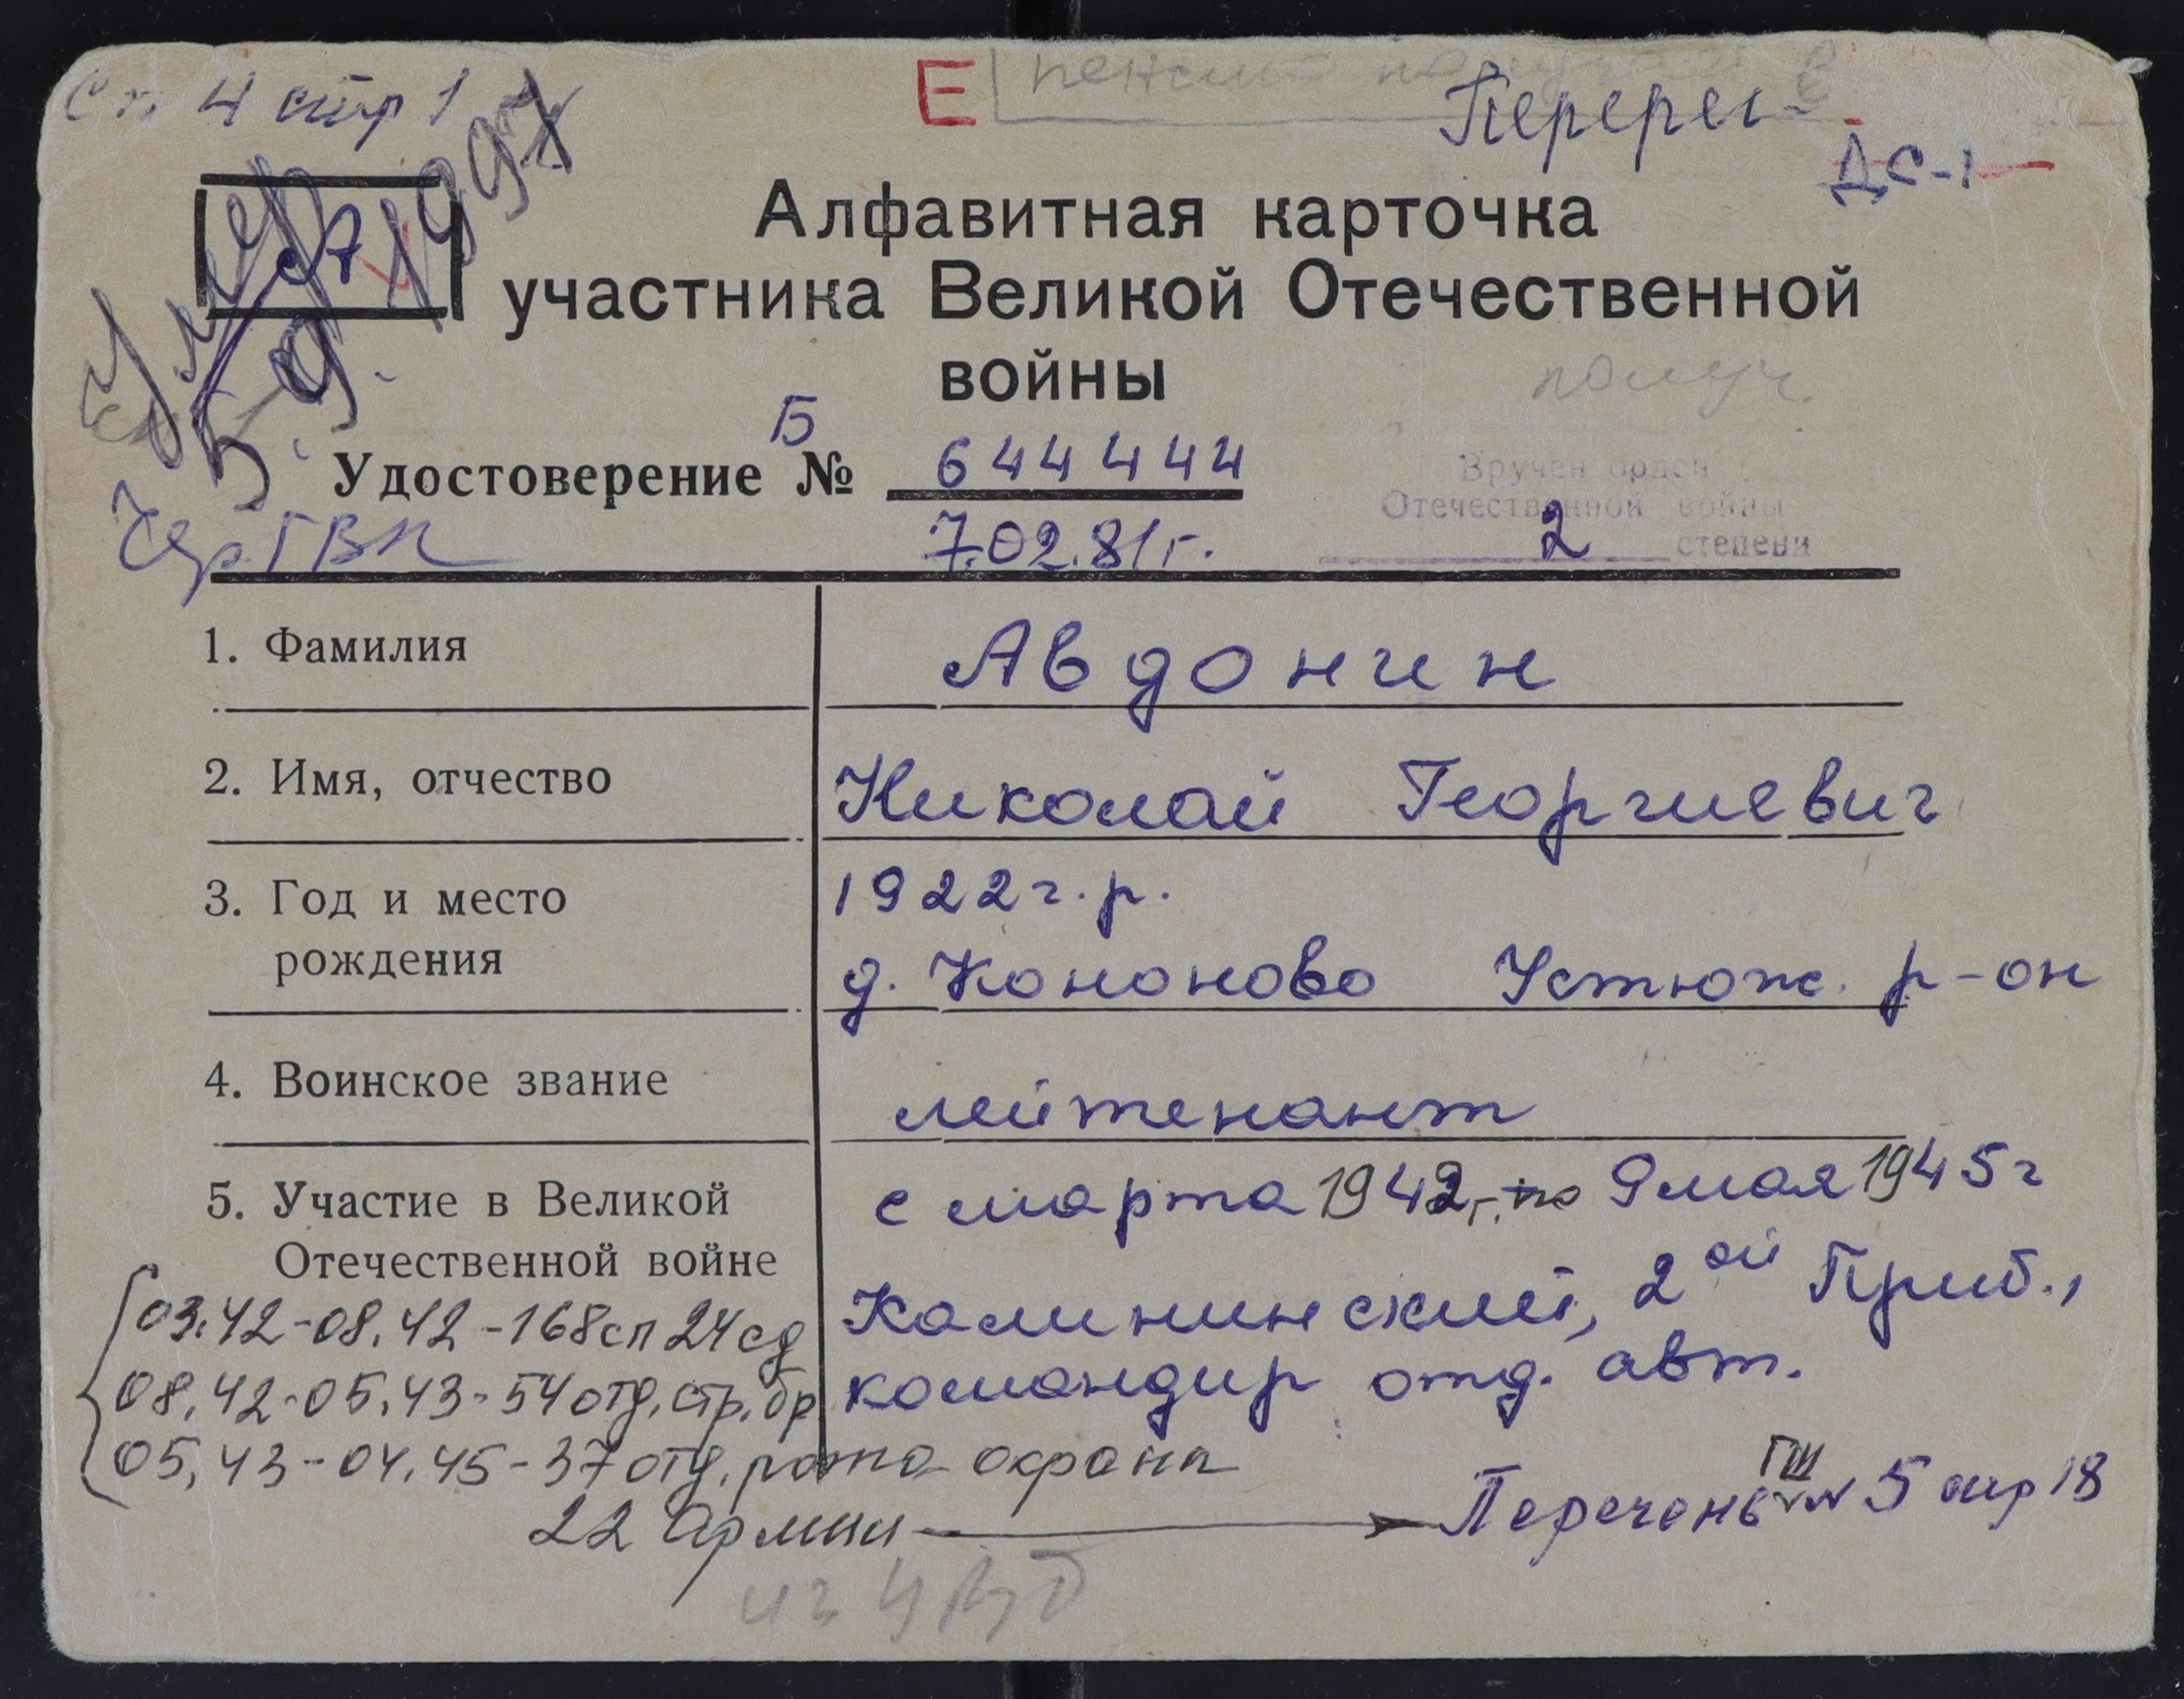 Ст. 4 стр 1
Е пенсию
Перерег.
ДС-1
Умер
5.9.1997
Алфавитная карточка
участника Великой Отечественной
войны
получ.
Б
Удостоверение № 644444
Вручен орден
Отечественной войны
2 степени
Чер. ГВК 7.02.81г.
1. Фамилия Авдонин
2. Имя, отчество Николай Георгиевич
3. Год и место 1922 г.р.
рождения д. Кононово Устюж. р-он
4. Воинское звание лейтенант
5. Участие в Великой с марта 1942г. по 9 мая 1945 г
Отечественной войне
Калининский, 2ой Приб.,
командир отд. авт.
03.42-08.42-168сп 24сд
08.42-05.43-54 отд. стр. бр
05.43-04.45-37 отд. рота охраны
22 Армии
Перечень ГШ № 5 стр 18